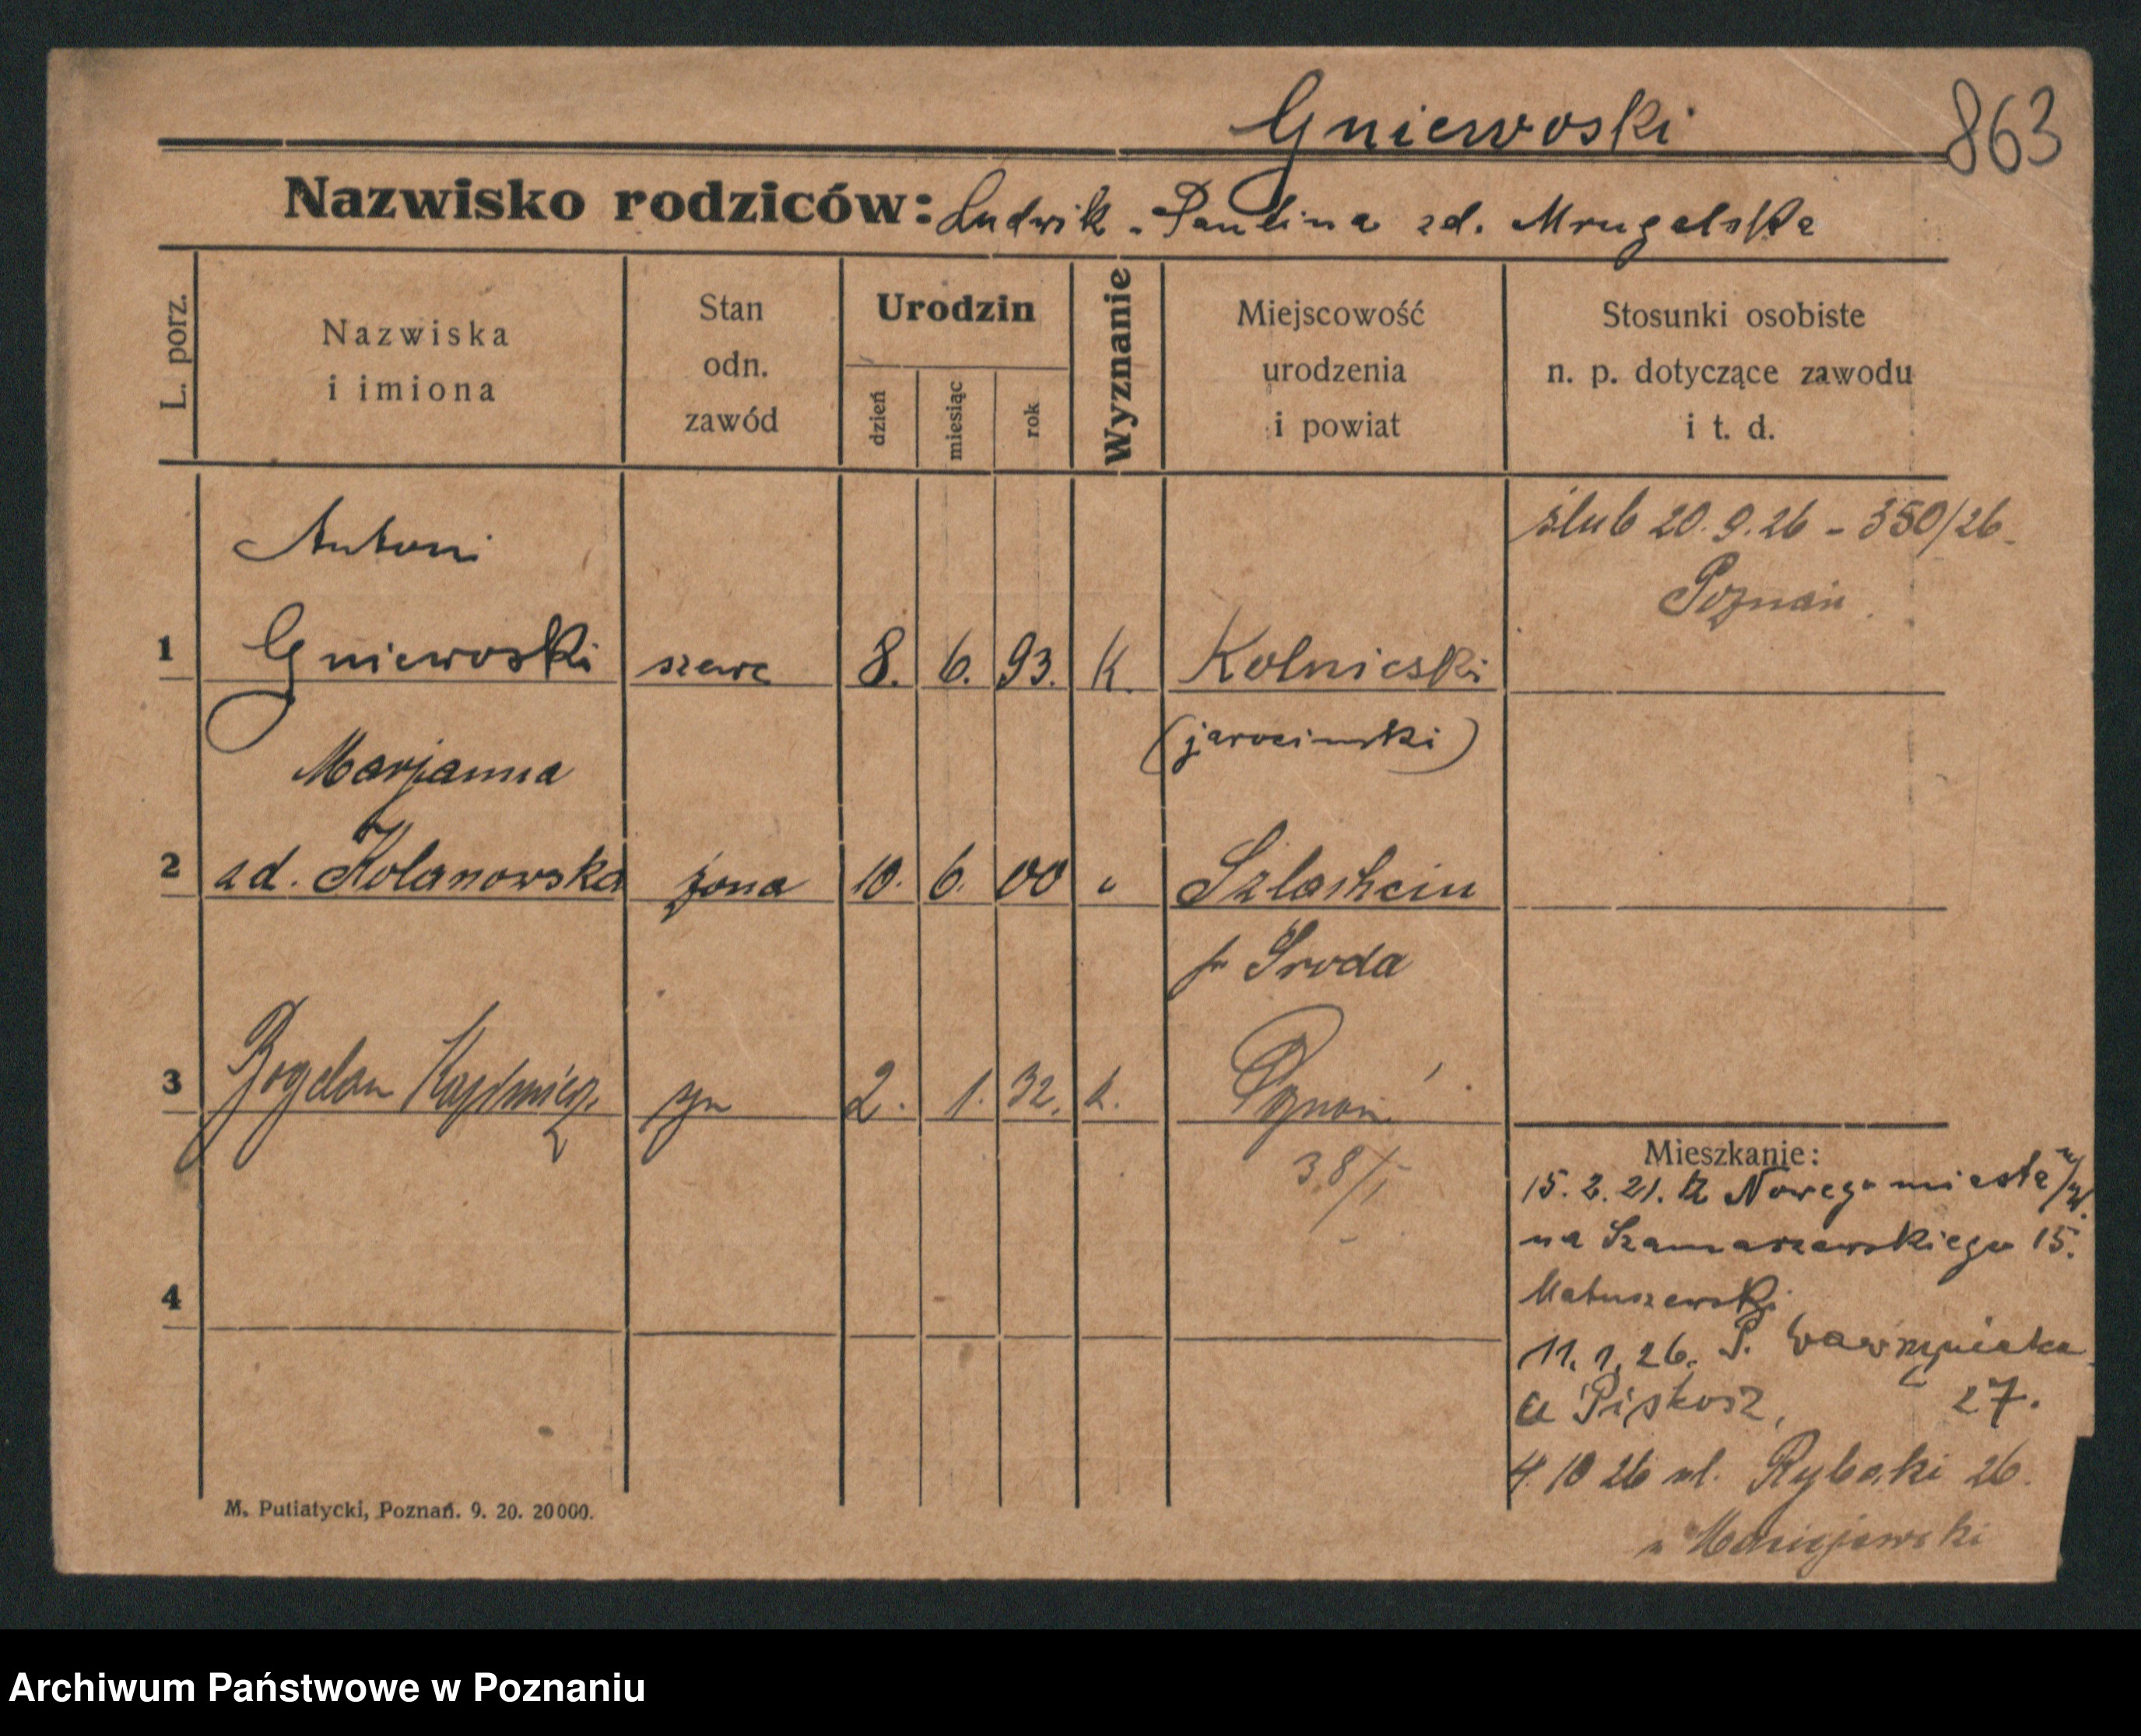 Gniewoski
863
Nazwisko rodziców: Ludwik - Paulina zd. Mrugalska
L. porz.
Nazwiska
i imiona
Stan
odn.
zawód
Urodzin
dzień
miesiąc
rok
Wyznanie
Miejscowość
urodzenia
i powiat
Stosunki osobiste
n. p. dotyczące zawodu
i t. d.
ślub 20.9.26 - 350/26
Poznań
Antoni
1 Gniewoski szewc 8. 6. 93. K. Kolniczki
(jarocinski)
Marjanna
2 zd. Kolanowska żona 10. 6. 00 " Szlachcin
p Sroda
3 Bogdan Kazimierz syn 2. 1. 32. k. Poznań
38/I
Mieszkanie:
15. 2. 21. z Nowego miasta n/W.
na Szamarzewskiego 15.
Matuszewski
11. 1. 26. P. Wawrzyniaka
a Piskosz, 27.
4 10 26 ul. Rybaki 26.
4
M. Putiatycki, Poznań. 9. 20. 20000.
Archiwum Państwowe w Poznaniu